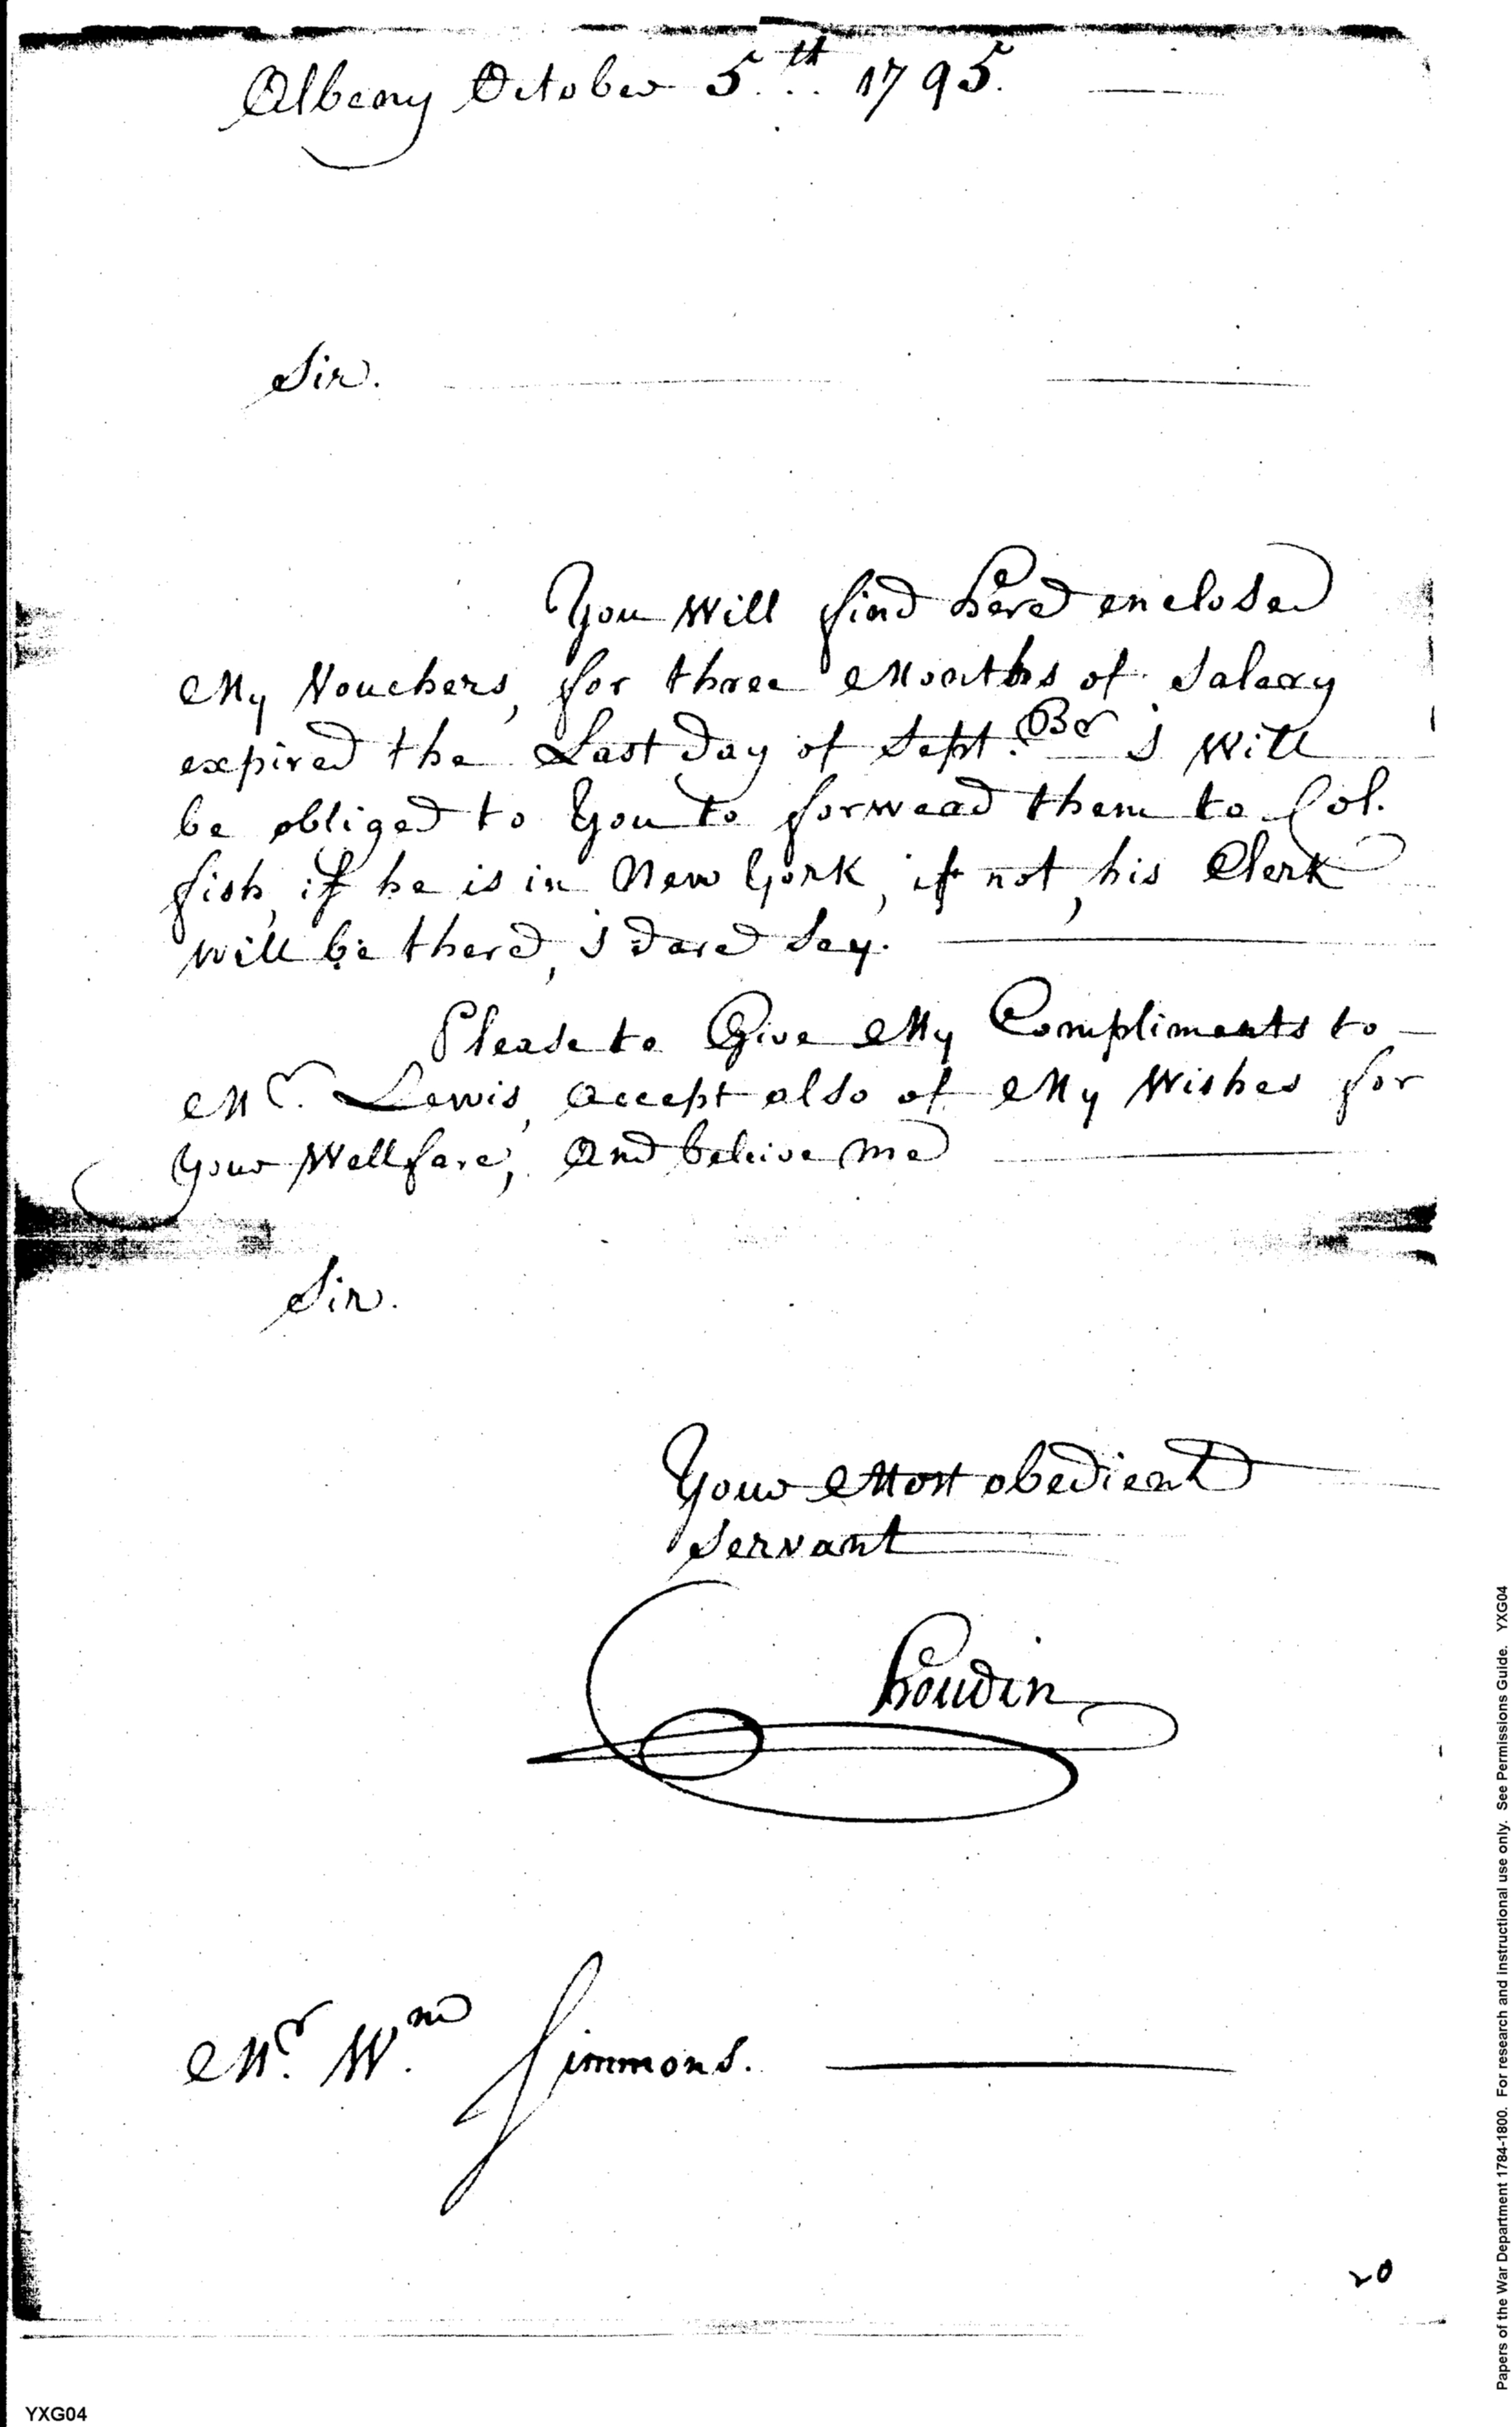 Albany October 5th 1795.
Sir.
You Will find here enclosed
My Vouchers, for three Months of Salary
expired the Last day of Sept.Ber I Will
be obliged to You to forward them to Col.
fish, if he is in New York, if not, his Clerk
will be there, I dare Say.
Please to Give My Compliments to
Mr. Lewis, accept also of My Wishes for
Your Wellfare, And beleive me
Sir.
Your Most obedient
Servant
Houdin
Mr. Wm Simmons.
20
YXG04
Papers of the War Department 1784-1800. For research and instructional use only. See Permissions Guide. YXG04